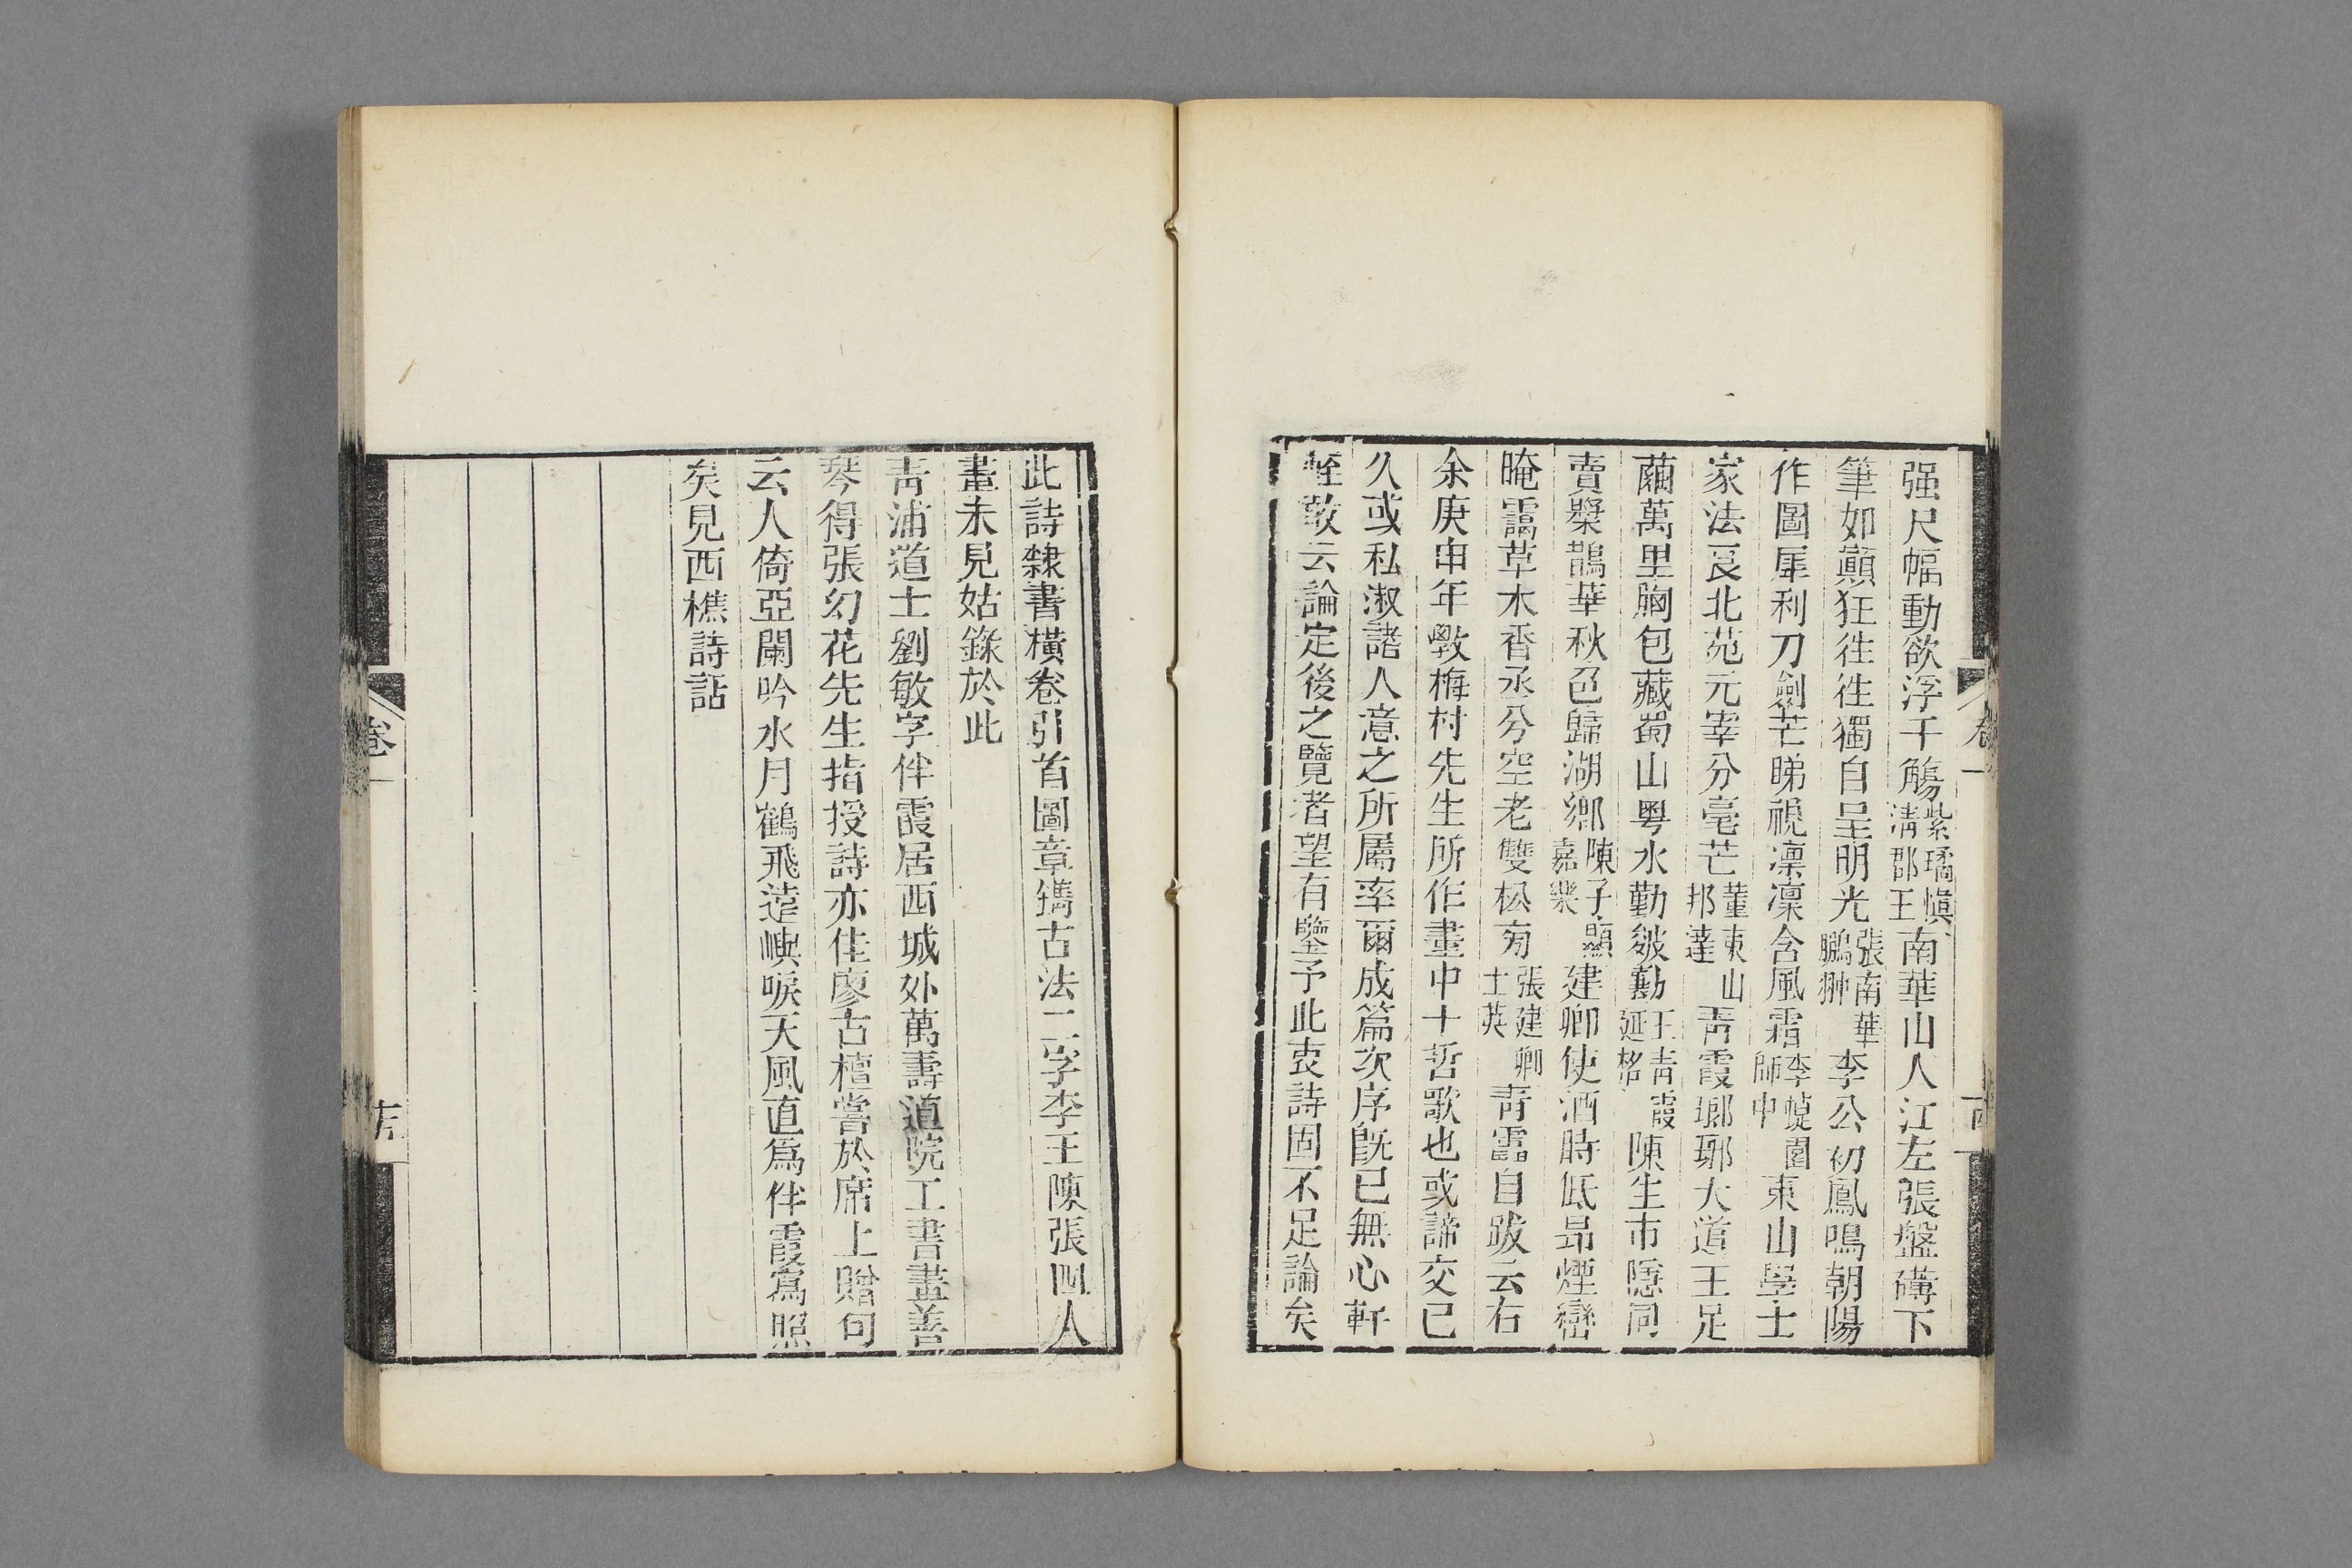 强尺幅動欲浮千觴紫璚慎清郡王南華山人江左張盤礴下
筆如顚狂徃徃獨自呈明光張南華鵬翀李公初鳳鳴朝陽
作圖犀利刀劍芒睇視凛凛含風霜李幀園師中東山學士
家法良北苑元宰分毫芒董東山邦達靑霞瑯琊大道王足
繭萬里胸包藏蜀山粤水勤皴勷王靑霞延格陳生市隱同
賣漿鵲華秋色歸湖鄉陳子顯嘉樂建卿使酒時低昂煙巒
晻靄草木香丞兮空老雙松㫄張建卿士英靑靁自跋云右
余庚申年斆梅村先生所作畫中十哲歌也或諦交已
久或私淑諸人意之所屬率爾成篇次序旣已無心軒
輊敢云論定後之覽者望有鑒予此衷詩固不足論矣
卷一
此詩隸書橫卷引首圖章鐫古法二字李王陳張四人
畫未見姑錄於此
靑浦道士劉敏字伴霞居西城外萬壽道院工書畫善
琴得張幻花先生指授詩亦佳廖古檀嘗於席上贈句
云人倚亞闌吟水月鶴飛遠嶼唳天風直爲伴霞寫照
矣見西樵詩話
卷一